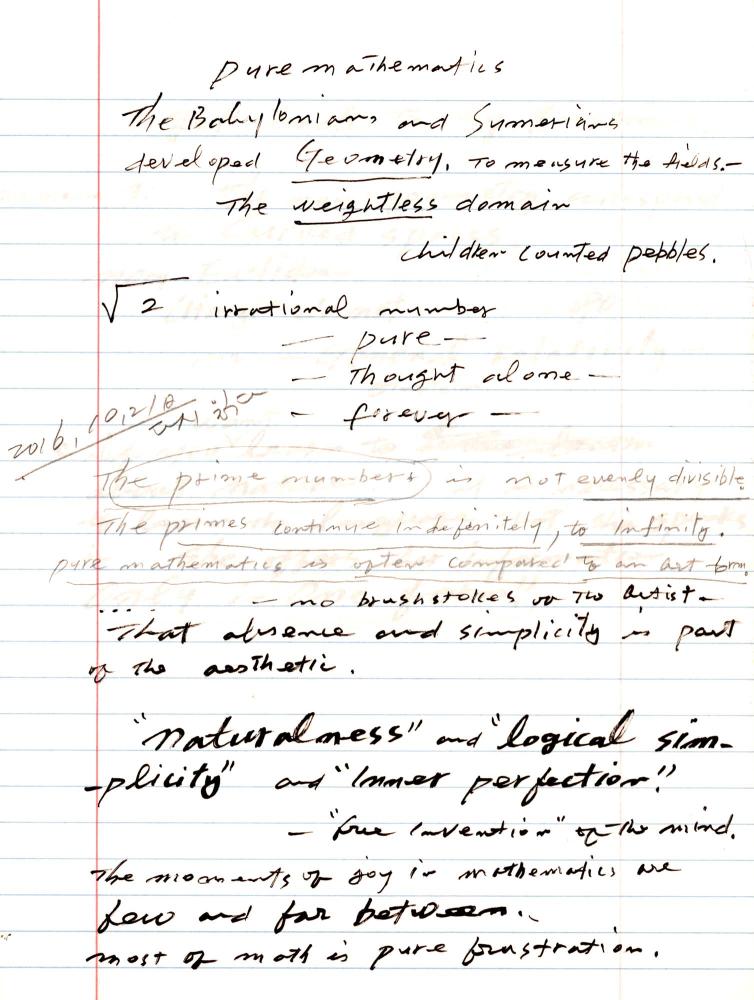 pure mathematics
The Babylonians and Sumerians
developed Geometry, To measure the fields.-
The weightless domain
children counted pebbles.
√2 irrational number
— pure —
— Thought alone —
— forever —
2016, 10, 21
The prime numbers is not evenly divisible
The primes continue indefinitely, to infinity.
pure mathematics is often compared to an art form.
.... — no brushstokes or The Artist —
That absence and simplicity is part
of The aesthetic.
"naturalness" and "logical sim-
-plicity" and "Inner perfection!"
— "free Invention" of The mind.
The moments of joy in mathematics are
few and far between.
most of math is pure frustration.